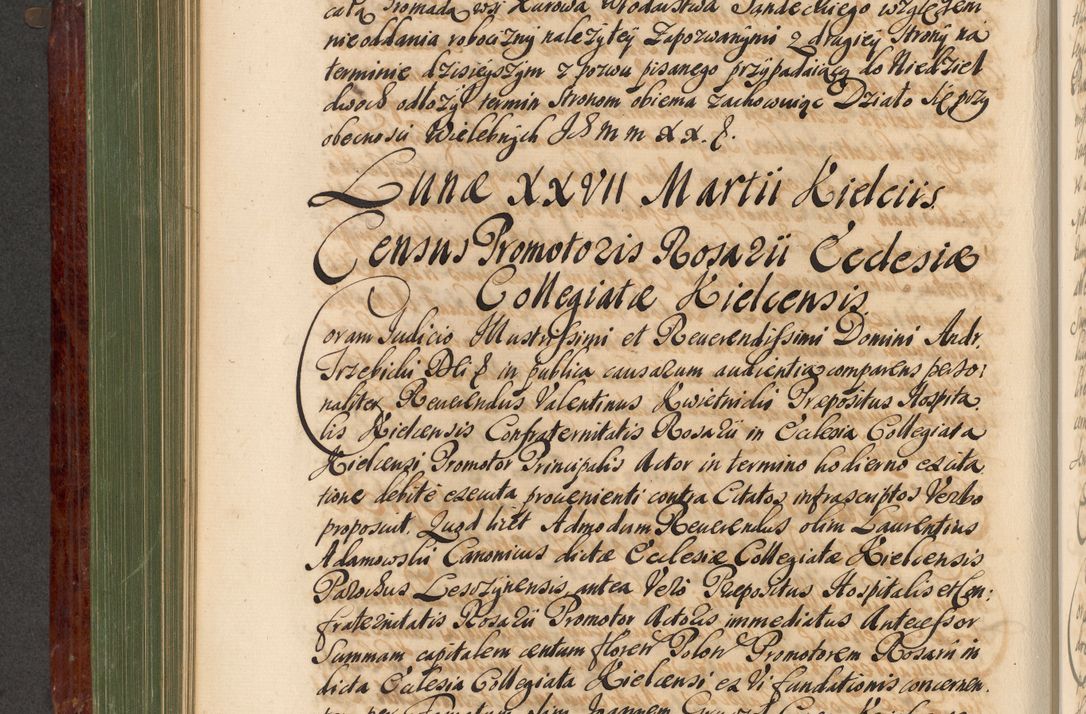 cała Gromada wsi Kurowa Włodarstwa Sandeckiego względem
nieoddania robocizny należytey Zapozwanymi z drugiey strony na
terminie dzisieyszym z pozwu pisanego przypadaiący do Niedziel
dwoch odłozył termin stronom obiema zachowuiąc Działo się przy
obecnosci Wielebnych
Lunæ XXVII Martii Kielciis
Census Promotoris Rosarii Ecclesiæ
Collegiatæ Kielcensis
Coram Judicio Illustrissimi et Reuerendissimi Domini Andr.
Trzebicki in publica causarum audientia comparens perso:
naliter Reuerendus Valentinus Kwietnicki Præpositus Hospita
lis Kielcensis Confraternitatis Rosarii in Ecclesia Collegiata
Kielcensi Promotor Principalis Actor in termino hodierno ex cita
tione debite executa prouenienti contra Citatos infrascriptos Verbo
proposuit. Quod licet Admodum Reuerendus olim Laurentius
Adamowski Canonicus dictæ Ecclesiæ Collegiatæ Kielcensis
Parochus Leszczynensis, antea Vero Præpositus Hospitalis et Con:
fraternitatis Rosarii Promotor Actoris immediatus Antecessor
Summam capitalem centum floren Polon Promotorem Rosarii in
dicta Ecclesia Collegiata Kielcensi ex Vi fundationis concernen.
per olim Joannem